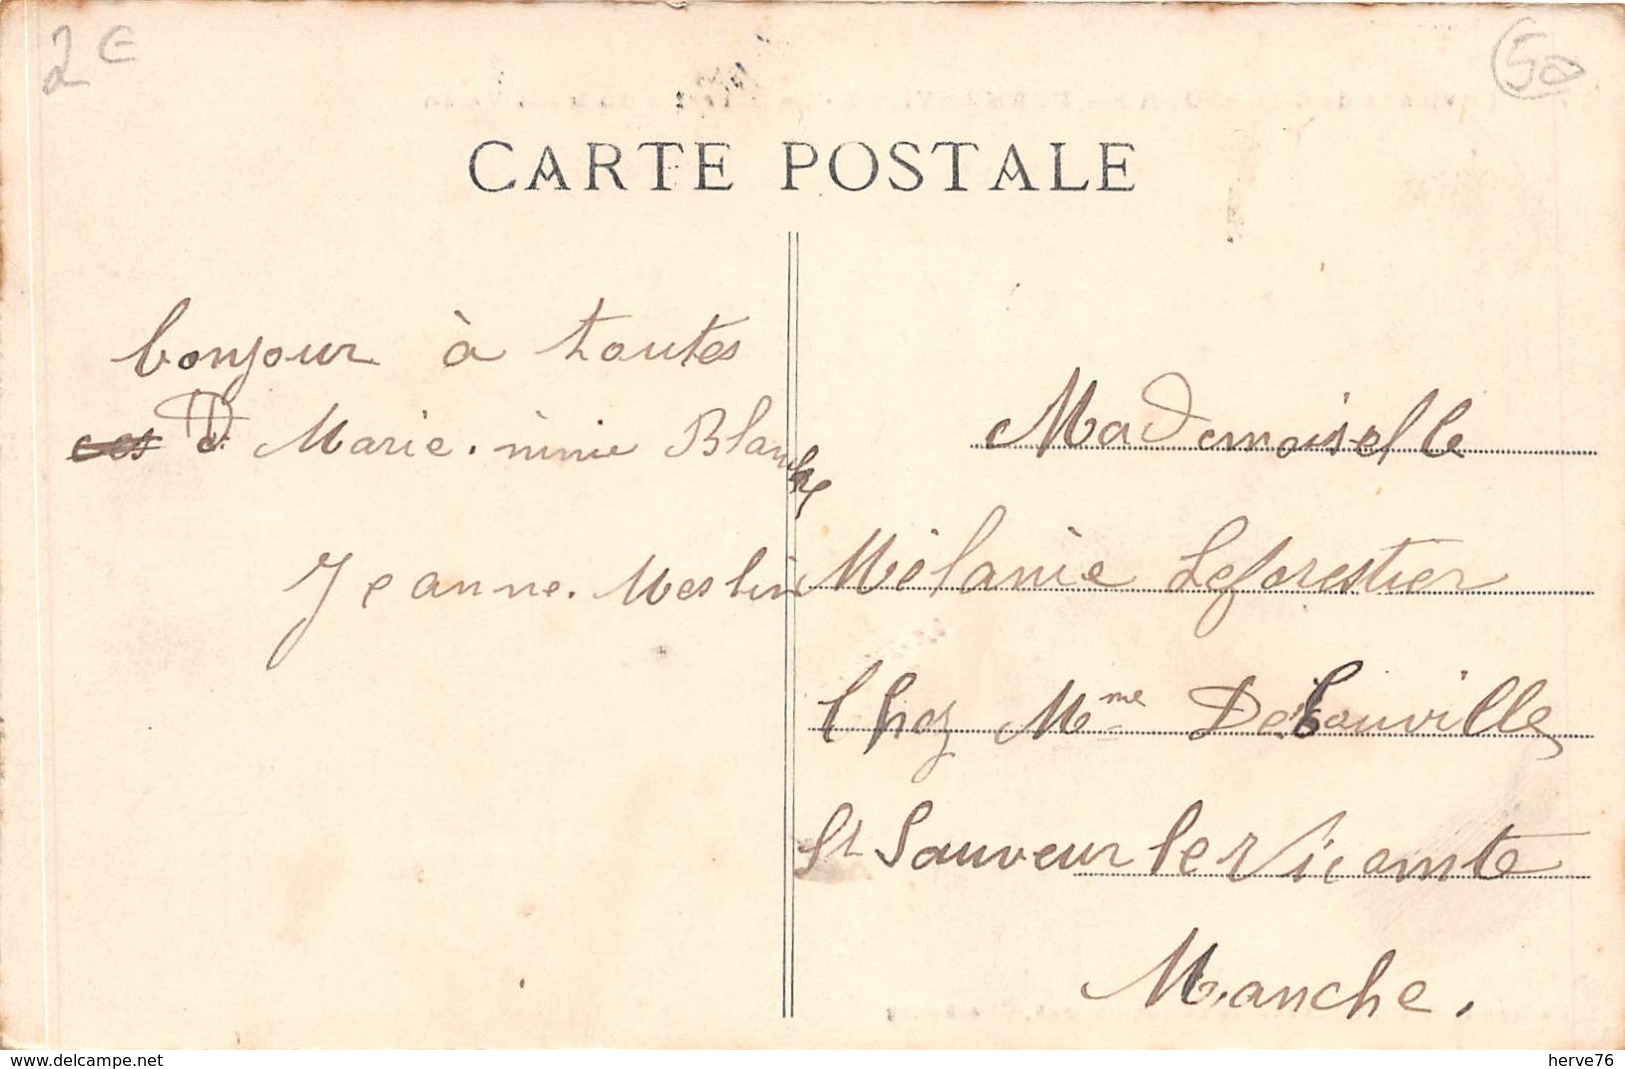 2€
50
CARTE POSTALE
bonjour à toutes
Marie. ninie Blanche
Jeanne. Meslin
Mademoiselle
Mélanie Leforestier
Chez Mme Delouville
St Sauveur le Vicomte
Manche.
www.delcampe.net
herve76